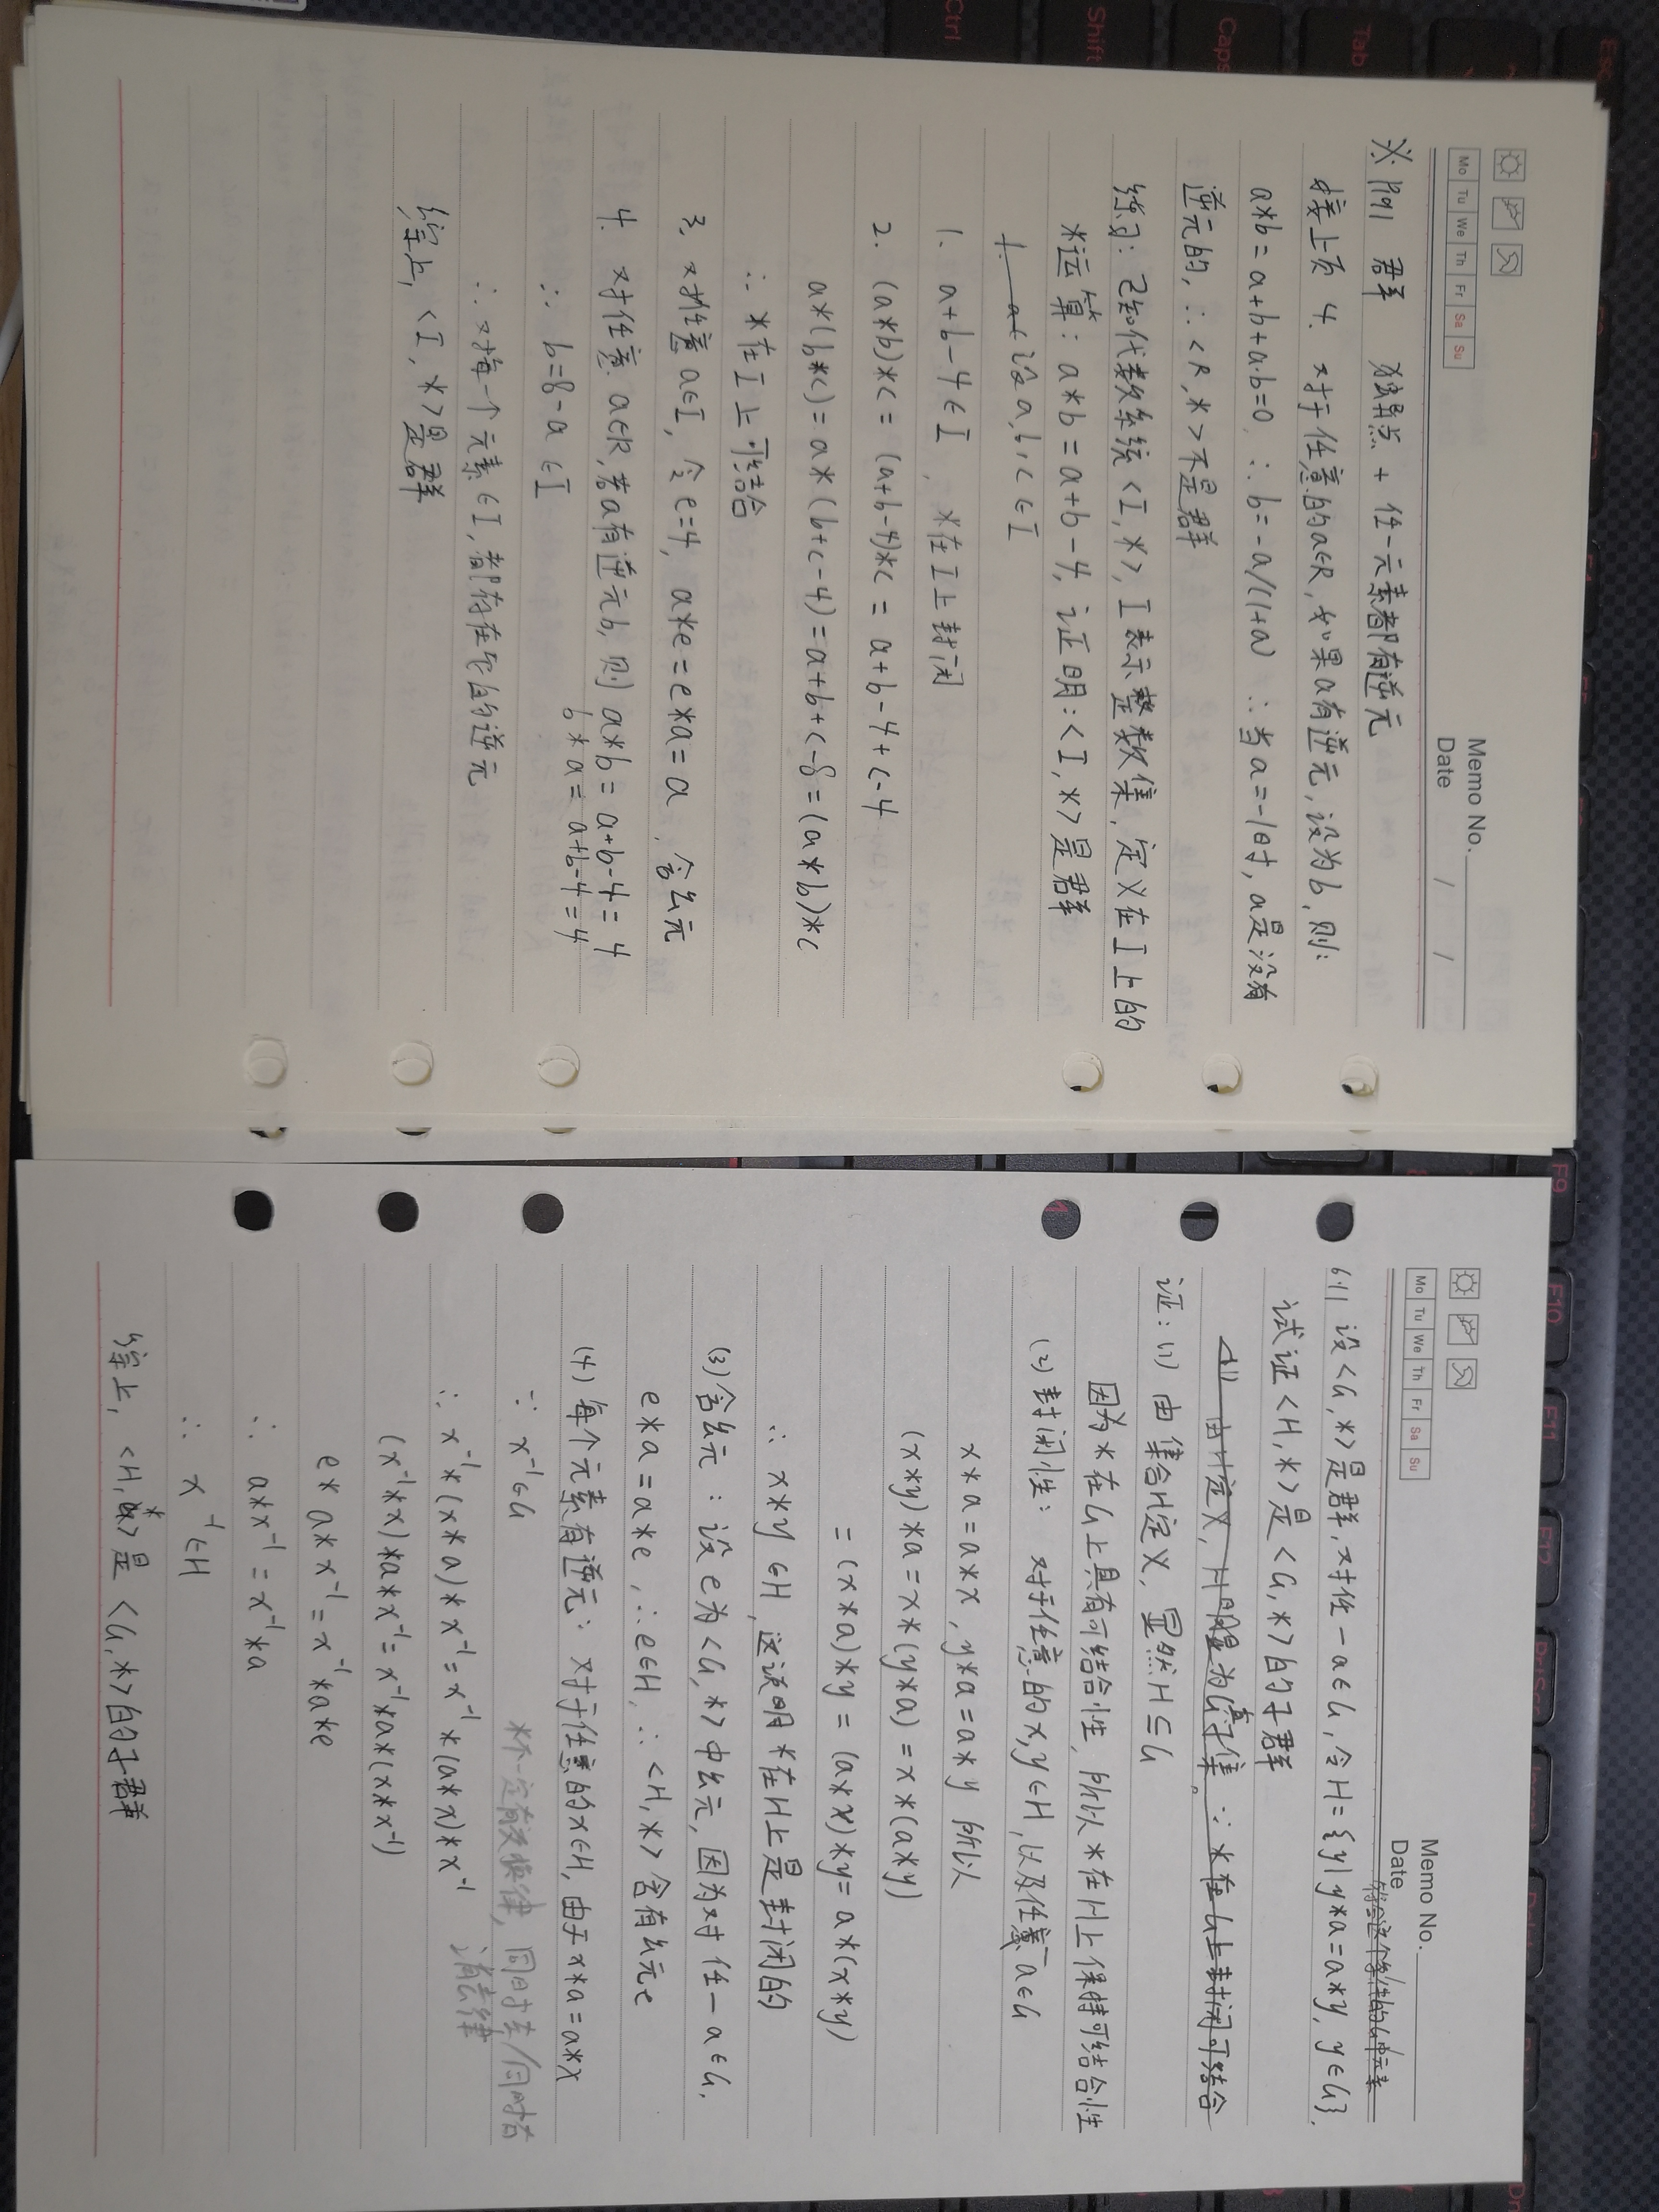 Mo Tu We Th Fr Sa Su
Memo No.
Date / /
※ P191 群 独异点 + 任一元素都有逆元
接上页 4. 对于任意的a∈R, 如果a有逆元, 设为b, 则:
a*b = a+b+a·b=0, ∴ b=-a/(1+a) ∴ 当a=-1时, a是没有
逆元的, ∴ <R, *> 不是群
练习: 已知代数系统 <I, *>, I表示整数集, 定义在I上的
*运算: a*b = a+b-4, 证明: <I, *> 是群
设 a, b, c ∈ I
1. a+b-4 ∈ I, *在I上封闭
2. (a*b)*c = (a+b-4)*c = a+b-4+c-4
a*(b*c) = a*(b+c-4) = a+b+c-8 = (a*b)*c
∴ *在I上可结合
3. 对任意a∈I, 令e=4, a*e=e*a=a, 含幺元
4. 对任意a∈R, 若a有逆元b, 则 a*b = a+b-4 = 4
b*a = a+b-4 = 4
∴ b=8-a ∈I
∴ 对每一个元素∈I, 都存在它的逆元
综上, <I, *> 是群
Mo Tu We Th Fr Sa Su
Memo No.
Date
符合这个条件的G中元素
6.11 设<G, *>是群, 对任一a∈G, 令H={y| y*a=a*y, y∈G}.
试证<H, *>是<G, *>的子群
(1) 由H定义, H明显为G真子集。∵ *在G上封闭可结合
证: (1) 由集合H定义, 显然H⊆G
因为*在G上具有可结合性, 所以*在H上保持可结合性
(2) 封闭性: 对于任意的x, y∈H, 以及任意一a∈G
x*a=a*x, y*a=a*y 所以
(x*y)*a=x*(y*a)=x*(a*y)
=(x*a)*y=(a*x)*y=a*(x*y)
∴ x*y∈H, 这说明*在H上是封闭的
(3) 含幺元: 设e为<G, *>中幺元, 因为对任一a∈G,
e*a=a*e, ∴e∈H, ∴<H, *>含有幺元e
(4) 每个元素有逆元: 对于任意的x∈H, 由于x*a=a*x
∵ x⁻¹∈G *不一定有交换律, 同时左/同时右
消去律
∴ x⁻¹*(x*a)*x⁻¹=x⁻¹*(a*x)*x⁻¹
(x⁻¹*x)*a*x⁻¹=x⁻¹*a*(x*x⁻¹)
e*a*x⁻¹=x⁻¹*a*e
∴ a*x⁻¹=x⁻¹*a
∴ x⁻¹∈H
综上, <H, *>是<G, *>的子群